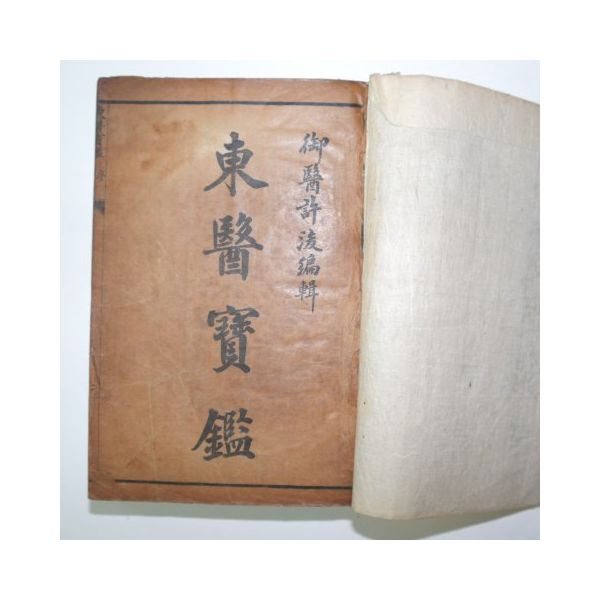 御醫許浚編輯
東醫寶鑑